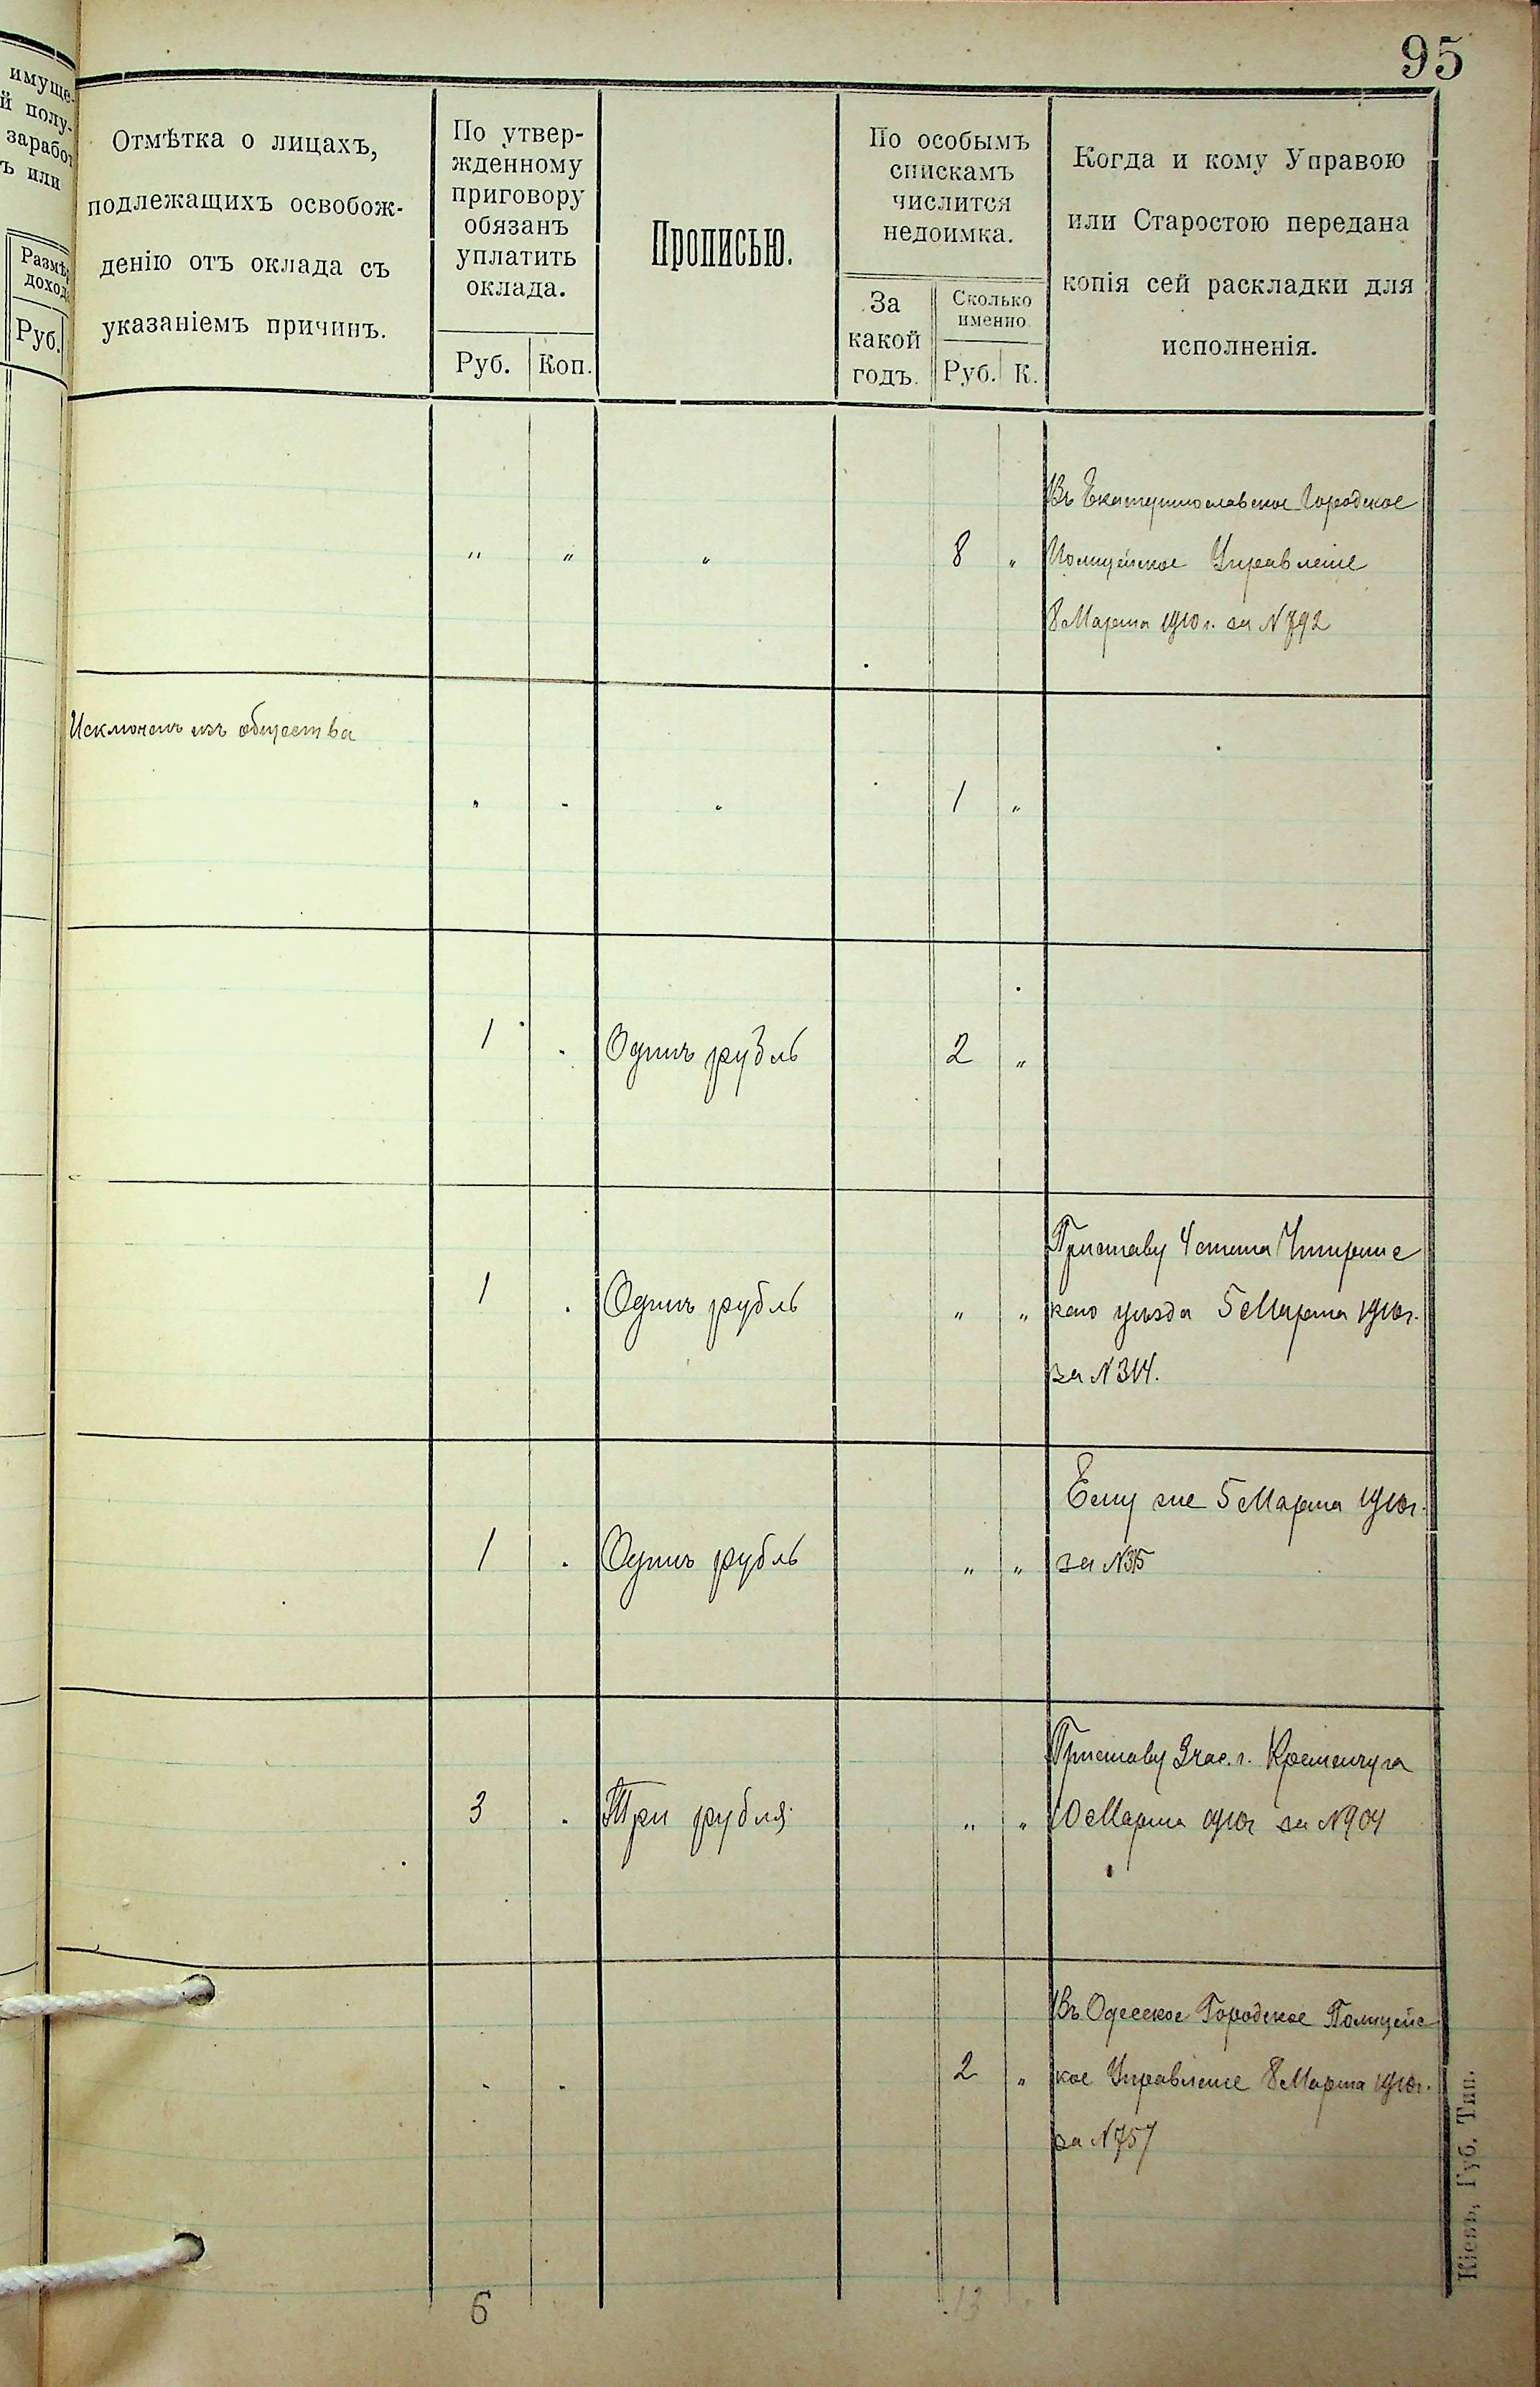 95
имуще-
й полу-
заработ
ъ или
Размѣ
доход
Руб.
Отмѣтка о лицахъ,
подлежащихъ освобож-
денію отъ оклада съ
указаніемъ причинъ.
По утвер-
жденному
приговору
обязанъ
уплатить
оклада.
Руб. Коп.
Прописью.
По особымъ
спискамъ
числится
недоимка.
За
какой
годъ.
Сколько
именно
Руб. К.
Когда и кому Управою
или Старостою передана
копія сей раскладки для
исполненія.
Въ Екатеринославское Городское
" " " 8 " Полицейское Управленіе
8 Марта 1910 г. за N 792
Исключенъ изъ общества
" " " 1 "
1 " Одинъ рубль 2 "
Приставу 4 стана Чигринс
1 " Одинъ рубль " " каго уѣзда 5 Марта 1910 г.
за N 314.
Ему же 5 Марта 1910 г.
1 " Одинъ рубль " " за N 315
Приставу 3 час. г. Кременчуга
3 " Три рубля " " 10 Марта 1910 г за N 904
Въ Одесское Городское Полицейс
" " 2 " кое Управленіе 8 Марта 1910 г.
за N 757
6 13
Кіевъ, Губ. Тип.